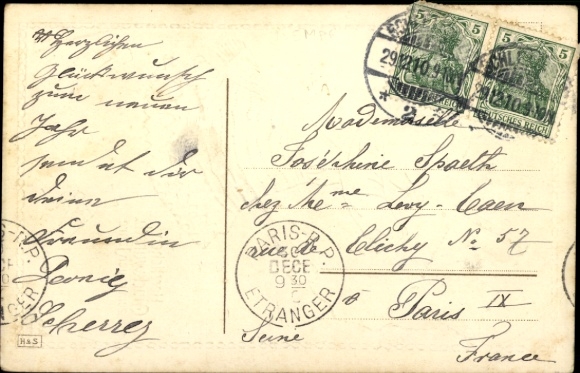 Herzlichen
Glückwunsch
zum neuen
Jahr
sendet dir
deine
Freundin
Scherrer
H&S
5 5
5 5
DEUTSCHES REICH
29.12.10.9-10V
Mademoiselle
Joséphine Spaeth
chez Mme Levy-Caen
rue de Clichy No 57
à Paris IX
Seine
France
PARIS-R.P.
30
DECE
9 30
ETRANGER